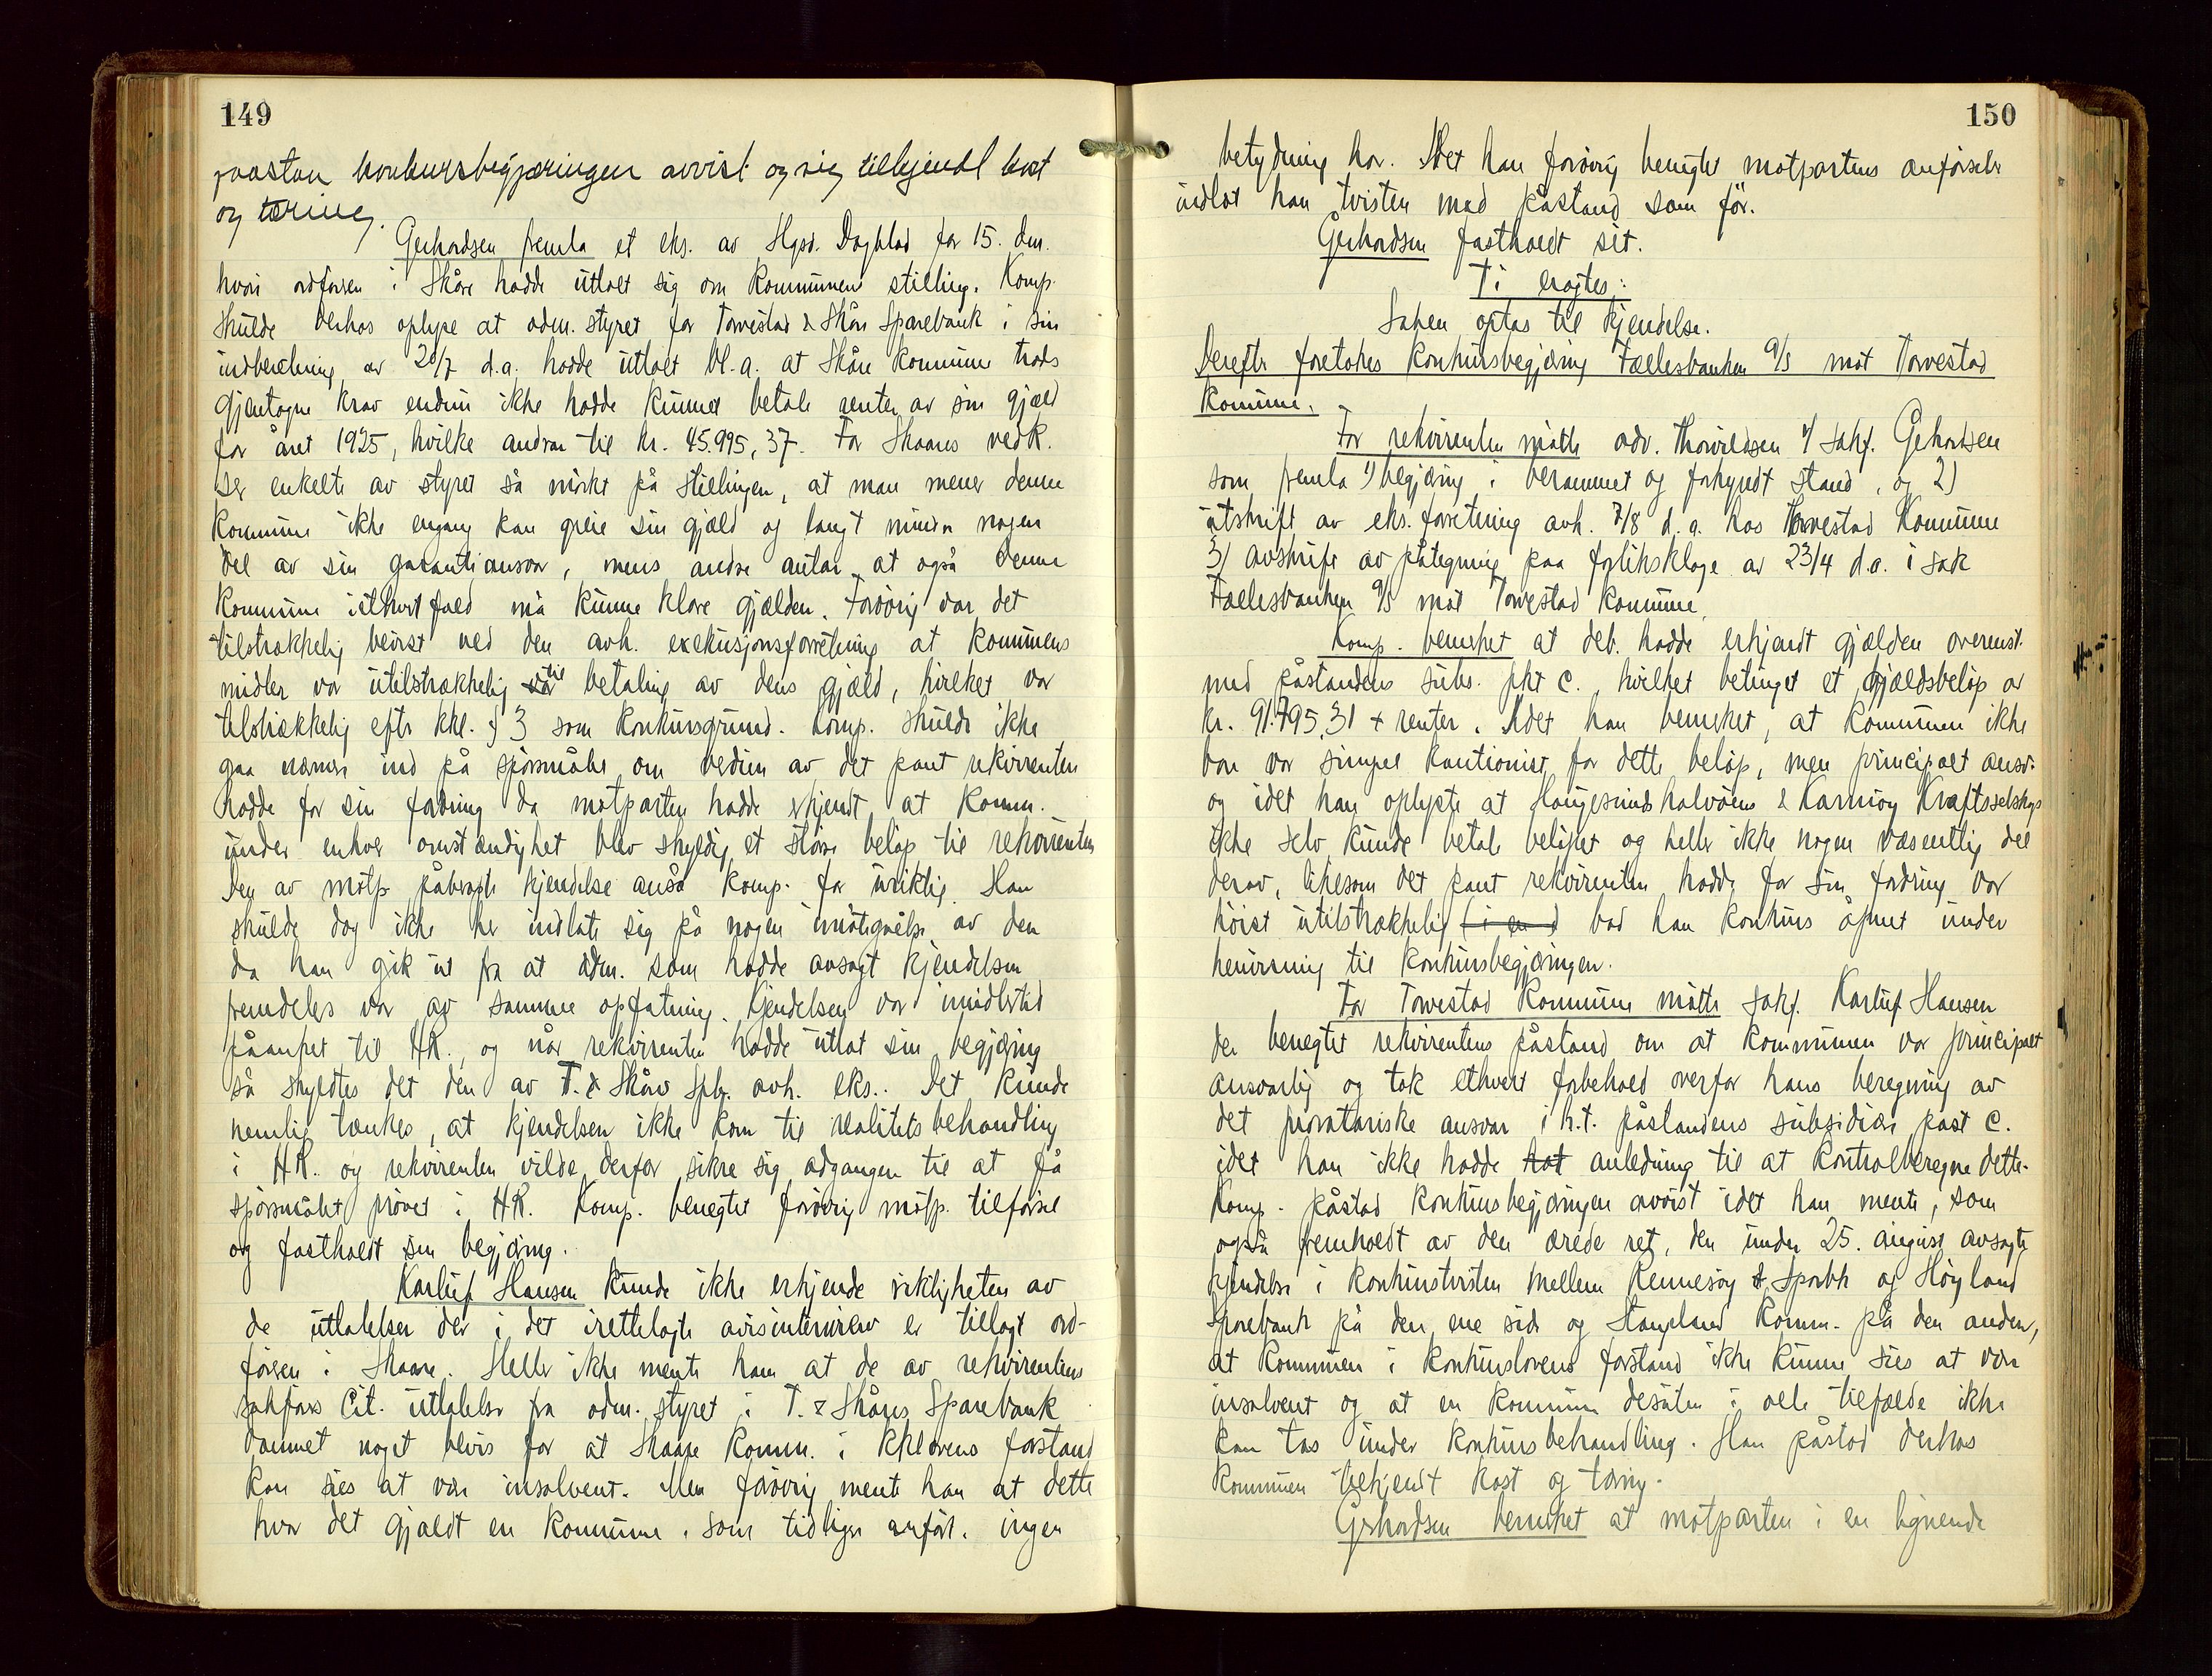 149
paastan konkursbegjæringen avvist og sig tilkjendt kost
og tæring.
Gerhardsen fremla et eks. av Hgsd. Dagblad for 15. dm.
hvori ordføreren i Skåre hadde uttalt sig om kommunens stilling. Komp.
skulde derhos oplyse at adm. styret for Torvestad & Skåre Sparebank i sin
indberetning av 20/7 d.a. hadde uttalt bl.a. at Skåre kommune trods
gjentagne krav endnu ikke hadde kunnet betale renter av sin gjæld
for året 1925, hvilke andrar til kr. 45.995,37. For Skaares vedk.
ser enkelte av styret så mørkt på stillingen, at man mener denne
kommune ikke engang kan greie sin gjæld og langt mindre nogen
del av sin garantiansvar, mens andre antar at også denne
kommune iethvertfald må kunne klare gjælden. Forøvrig var det
tilstrækkelig bevist ved den avh. exekusjonsforretning at kommunens
midler var utilstrækkelig til betaling av dens gjæld, hvilket var
tilstrækkelig efter kkl. § 3 som konkursgrund. Komp. skulde ikke
gaa nærmere ind på spørsmålet om verdien av det pant rekvirenten
hadde for sin fordring da motparten hadde erkjendt at komm.
under enhver omstændighet blev skyldig et større beløp til rekvirenten
Den av motp. påberopte kjendelse anså komp. for uriktig. Han
skulde dog ikke her indlate sig på nogen imøtegåelse av den
da han gik ut fra at adm. som hadde avsagt kjendelsen
fremdeles var av samme opfatning. Kjendelsen var imidlertid
påanket til HR., og når rekvirenten hadde uttat sin begjæring
så skyldtes det den av T. & Skåre Spb. avh. eks.. Det kunde
nemlig tænkes, at kjendelsen ikke kom til realitetsbehandling
i HR. og rekvirenten vilde derfor sikre sig adgangen til at få
spørsmålet prøvet i HR. Komp. benegtet forøvrig motp. tilførsel
og fastholdt sin begjæring.
Karluf Hansen kunde ikke erkjende riktigheten av
de uttalelser der i det irettelagte avisinterview er tillagt ord-
føreren i Skaare. Heller ikke mente han at de av rekvirentens
sakfører cit. uttalelser fra adm. styret i T. & Skåre Sparebank
dannet noget bevis for at Skaare komm. i kklovens forstand
kan sies at være insolvent. Men forøvrig mente han at dette
hvor det gjaldt en kommune, som tidligere anført, ingen
150
betydning har. Idet han forøvrig benegtet motpartens anførsler
indlot han tvisten med påstand som før.
Gerhardsen fastholdt sit.
Ti eragtes:
Saken optas til kjendelse.
Derefter foretokes konkursbegjæring Fællesbanken A/S mot Torvestad
kommune.
For rekvirenten møtte adv. Thorvildsen v/ sakf. Gerhardsen
som fremla 1) begjæring i berammet og forkyndt stand, og 2)
utskrift av eks. forretning avh. 7/8 d.a. hos Torvestad kommune
3) avskrift av påtegning paa forliksklage av 23/4 d.a. i sak
Fællesbanken A/S mot Torvestad kommune.
Komp. bemerket at deb. hadde erkjendt gjælden overenst.
med påstandens subs. pkt c., hvilket betinget et gjældsbeløp av
kr. 91.795,31 + renter. Idet han bemerket, at kommunen ikke
bare var simpel kautionist for dette beløp, men principalt ansv.
og idet han oplyste at Haugesundshalvøens & Karmøy Kraftselskap
ikke selv kunde betale beløpet og heller ikke nogen væsentlig del
derav, likesom det pant rekvirenten hadde for sin fordring var
høist utilstrækkelig bad han konkurs åpnet under
henvisning til konkursbegjæringen.
For Torvestad kommune møtte sakf. Karluf Hansen
der benegtet rekvirentens påstand om at kommunen var principalt
ansvarlig og tok ethvert forbehold overfor hans beregning av
det proratariske ansvar i h.t. påstandens subsidiære post c.
idet han ikke hadde hat anledning til at kontrolberegne dette.
Komp. påstod konkursbegjæringen avvist idet han mente, som
også fremholdt av den ærede ret, den under 25. august avsagte
kjendelse i konkurstvisten mellem Rennesøy & Sparbk og Høyland
Sparebank på den ene side og Stangeland Komm. på den anden,
at kommunen i konkurslovens forstand ikke kunne sies at være
insolvent og at en kommune desuten i alle tilfælde ikke
kan tas under konkursbehandling. Han påstod derhos
kommunen tilkjendt kost og tæring.
Gerhardsen bemerket at motparten i en lignende